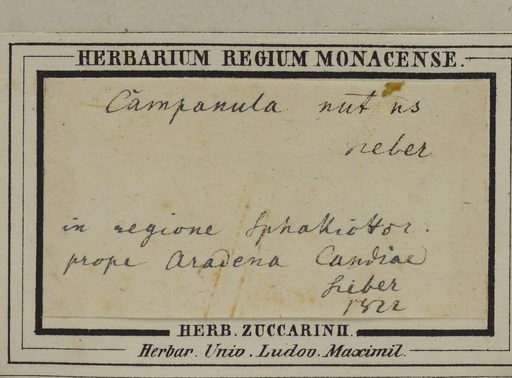 HERBARIUM REGIUM MONACENSE.
Campanula nutans
Sieber
in regione Sphakiottor.
prope Aradena Candiae
Sieber
1822
HERB. ZUCCARINII.
Herbar. Univ. Ludov. Maximil.